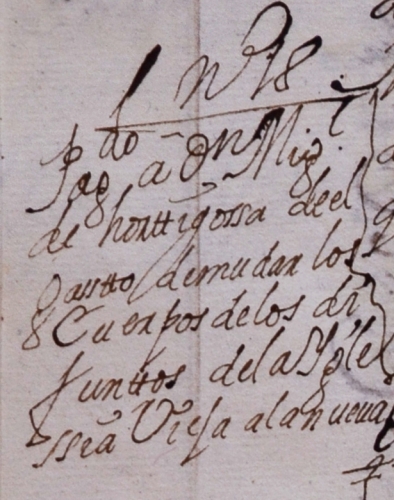 nº 18
Pagdo a Dn Migl
de horttigossa de el
gastto demudar los
Cuerpos delos di
funttos dela Ygle
ssia Vieja alanueva